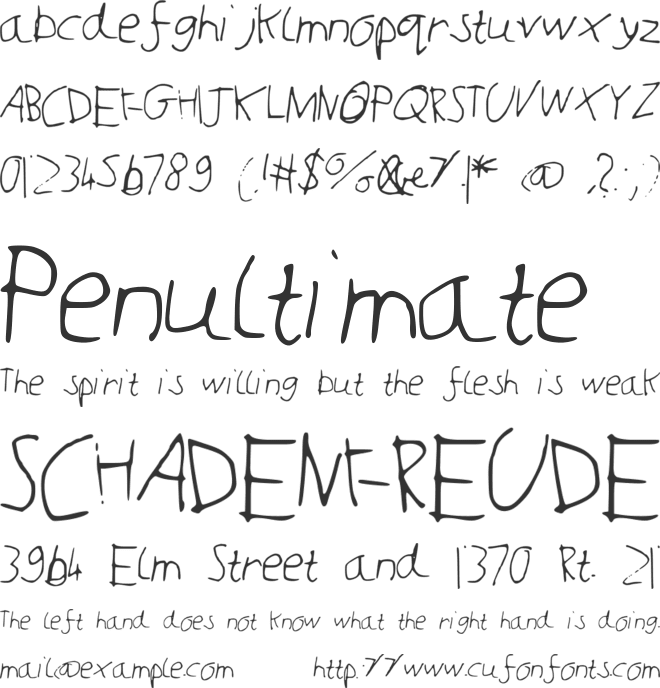 abcdefghijklmnopqrstuvwxyz
ABCDEFGHIJKLMNOPQRSTUVWXYZ
0123456789 (!#$%&e/.|* @ ,?:;)
Penultimate
The spirit is willing but the flesh is weak
SCHADENFREUDE
3964 Elm Street and 1370 Rt. 21
The left hand does not know what the right hand is doing.
mail@example.com http://www.cufonfonts.com